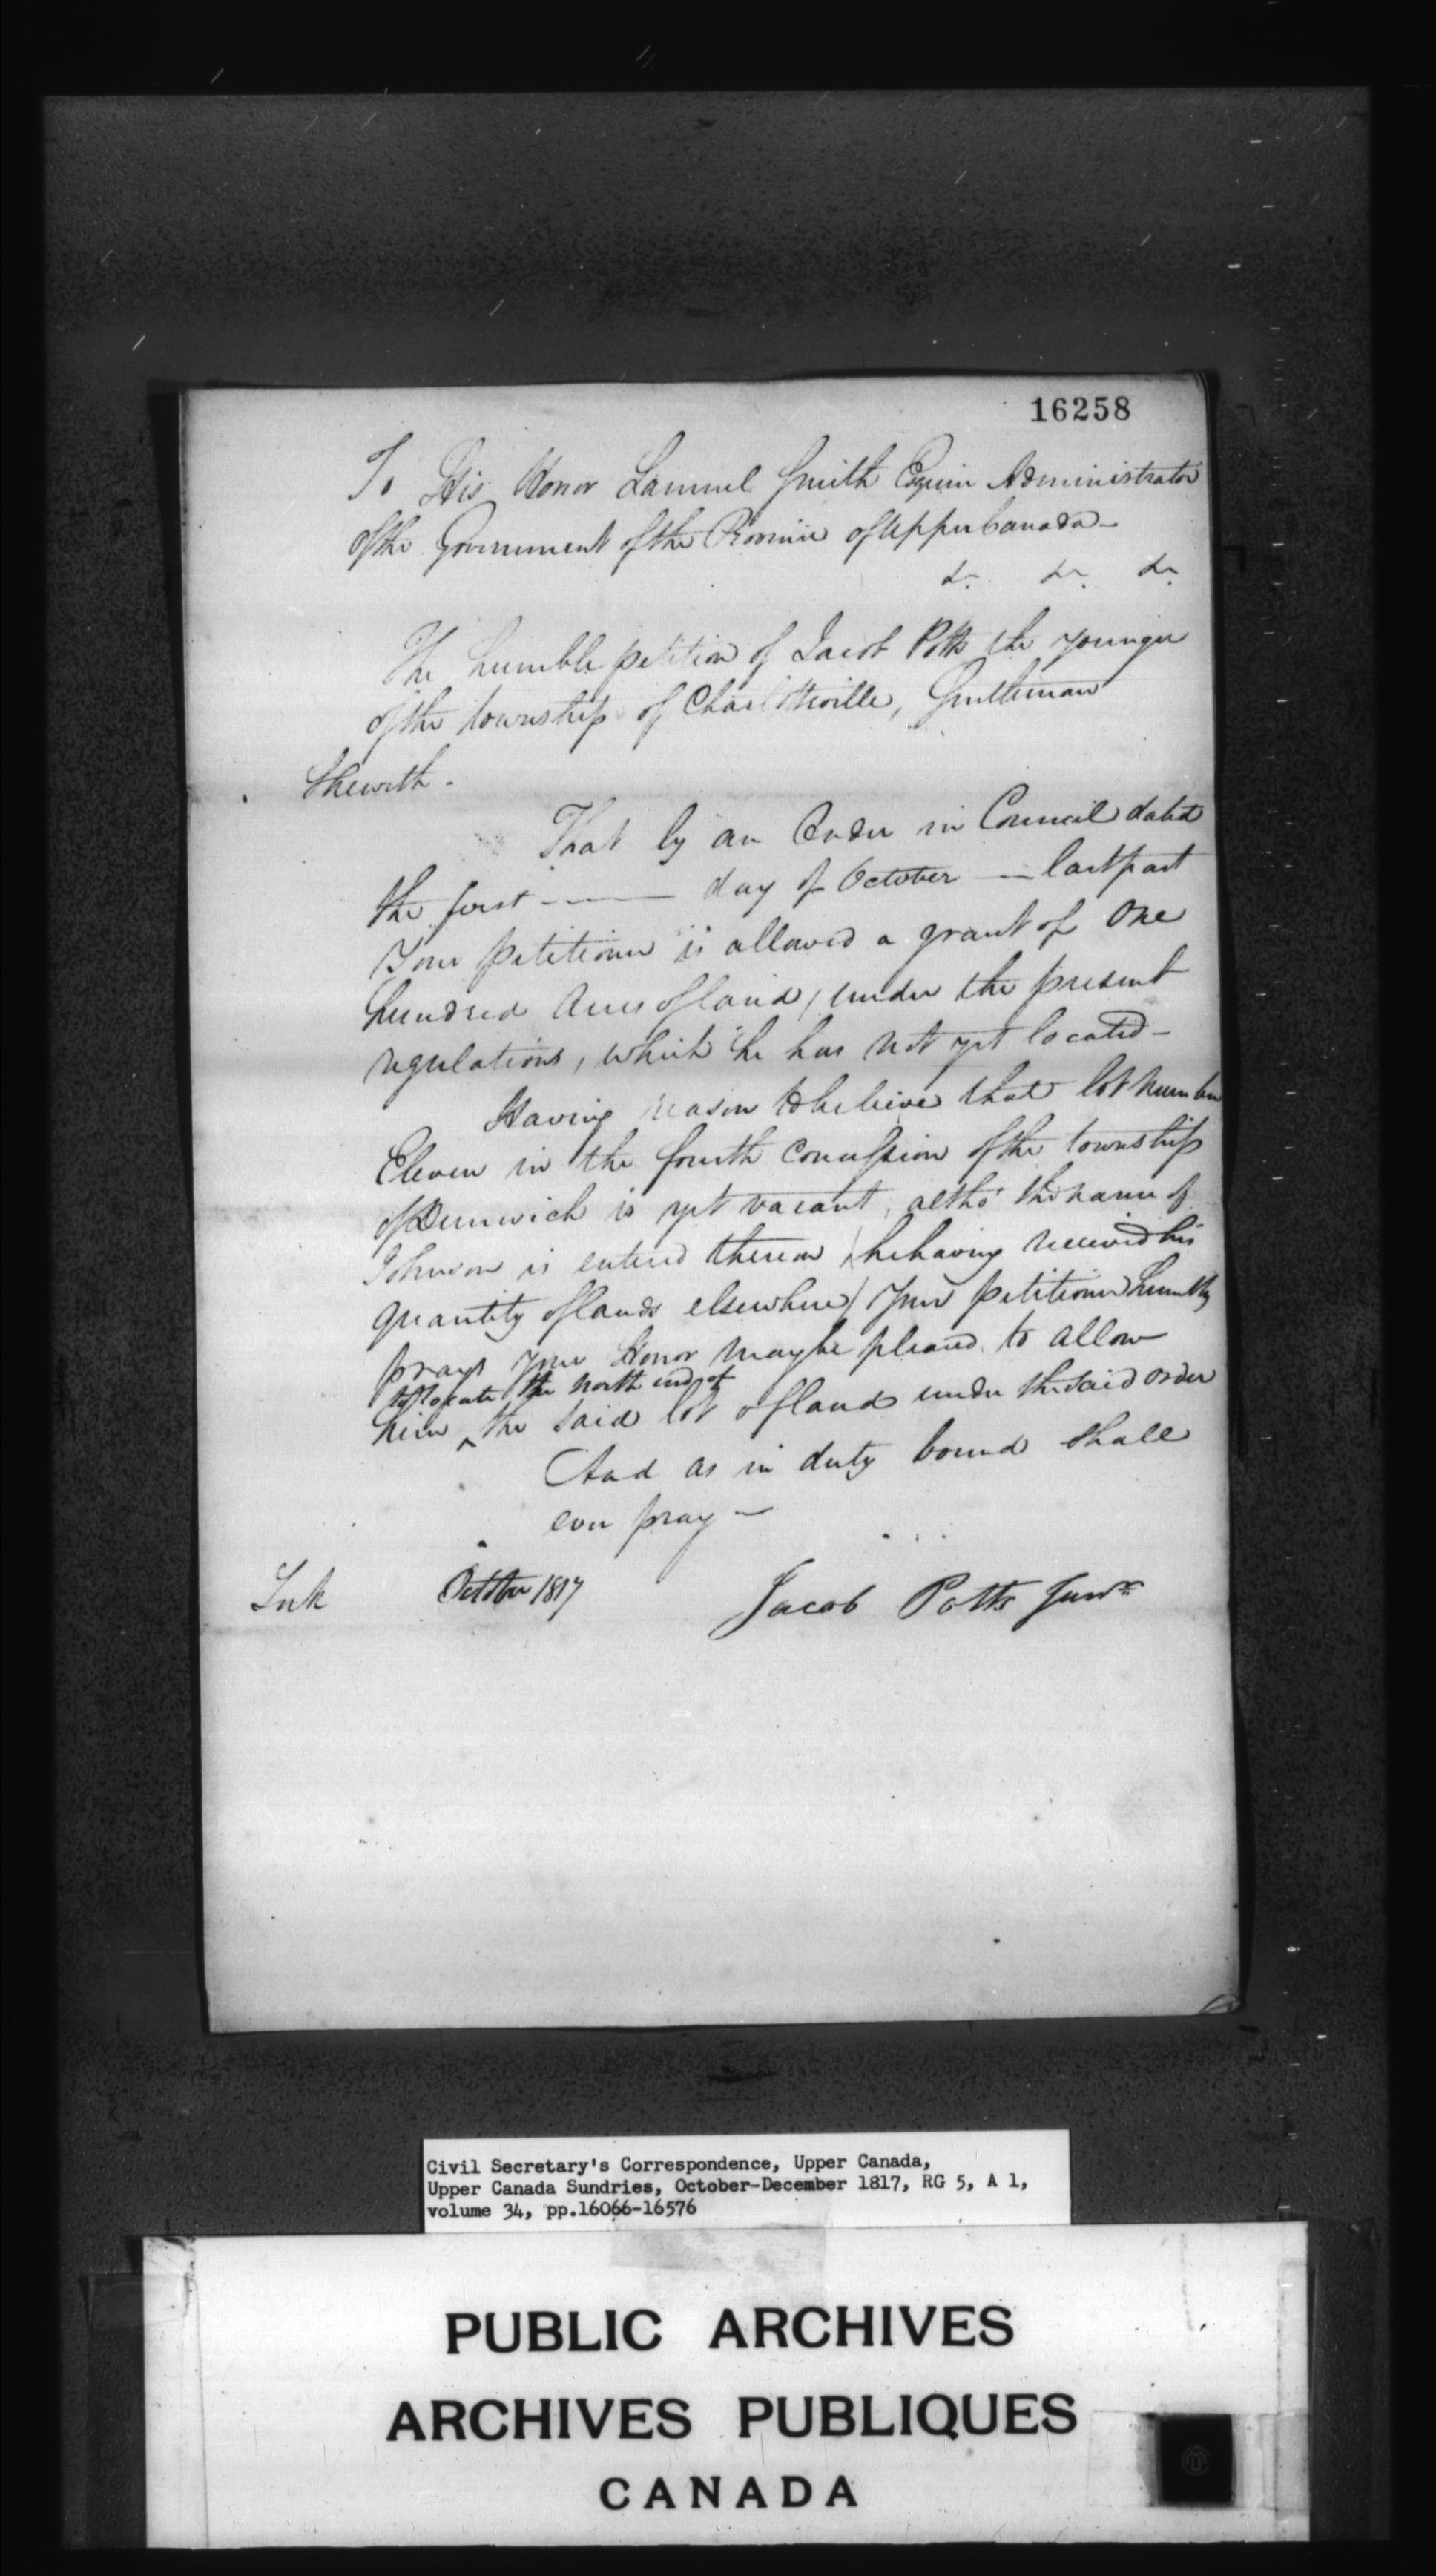 16258
To His Honor Samuel Smith Esquire Administrator
of the Government of the Province of Upper Canada—
&c. &c. &c.
The humble petition of Jacob Potts the younger
of the township of Charlotteville, Gentleman
Sheweth.
That by an Order in Council dated
the first ——— day of October — last past
Your petitioner is allowed a grant of One
hundred Acres of land, under the present
regulations, which he has not yet located—
Having reason to believe that lot number
Eleven in the fourth Concession of the township
of Dunwich is yet vacant, altho' the name of
Johnson is entered thereon (he having received his
quantity of lands elsewhere) Your petitioner humbly
prays Your Honor may be pleased to allow
to locate the north end of
him ^ the said lot of land under the said order
And as in duty bound shall
ever pray—
October 1817
Jacob Potts Junr.
Civil Secretary's Correspondence, Upper Canada,
Upper Canada Sundries, October-December 1817, RG 5, A 1,
volume 34, pp.16066-16576
PUBLIC ARCHIVES
ARCHIVES PUBLIQUES
CANADA